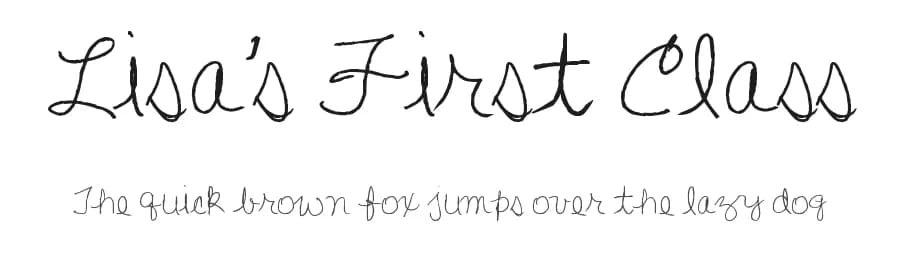 Lisa's First Class
The quick brown fox jumps over the lazy dog